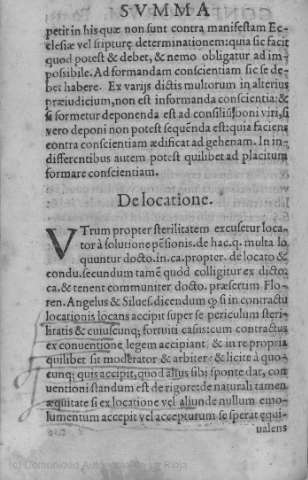 SVMMA
petit in his quæ non sunt contra manifestam Ec-
clesiæ vel scripturę determinationem: quia sic facit
quod potest & debet, & nemo obligatur ad im-
possibile. Ad formandam conscientiam sic se de-
bet habere. Ex varijs dictis multorum in alterius
præiudicium, non est informanda conscientia: &
si formetur deponenda est ad consiliũ boni viri, si
vero deponi non potest sequẽnda est: quia faciens
contra conscientiam ædificat ad gehenam. In in-
differentibus autem potest quilibet ad placitum
formare conscientiam.
De locatione.
VTrum propter sterilitatem excusetur loca-
tor à solutione pẽsionis. de hac. q. multa lo
quuntur docto. in. ca. propter. de locato &
condu. secundum tamẽ quod colligitur ex dicto.
ca. & tenent communiter docto. præsertim Flo-
ren. Angelus & Silues. dicendum qꝫ si in contractu
locationis locans accipit super se periculum steri-
litatis & cuiuscunqꝫ fortuiti casus: cum contractus
ex conuentione legem accipiant & in re propria
quilibet sit moderator & arbiter: & licite à quo-
cunqꝫ quis accipit, quod alius sibi sponte dat, con
uentioni standum est de rigore: de naturali tamen
æquitate si ex locatione vel aliunde nullum emo-
lumentum accepit vel accepturum se sperat ęqui-
ualens
(c) Comunidad Autónoma de La Rioja